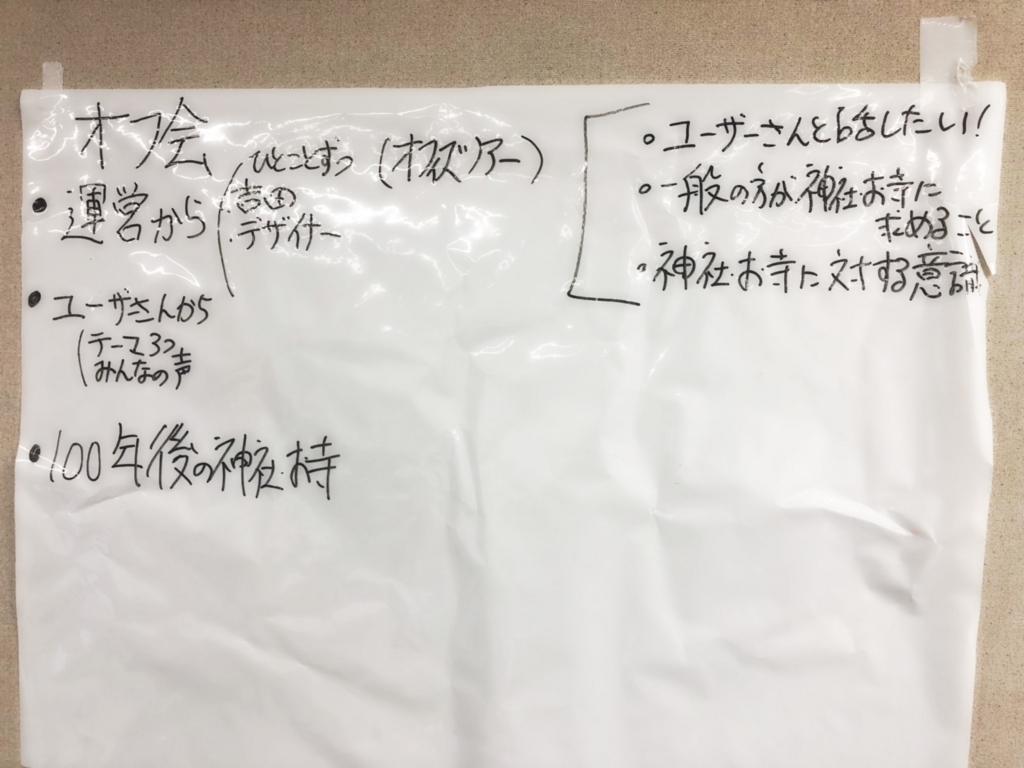 オフ会
・運営から
ひとことずつ (オフィスツアー)
吉田
デザイナー
・ユーザさんから
テーマ3つ
みんなの声
・100年後の神社・お寺
・ユーザーさんと話したい!
・一般の方が神社お寺に
求めること
・神社・お寺に対する意識